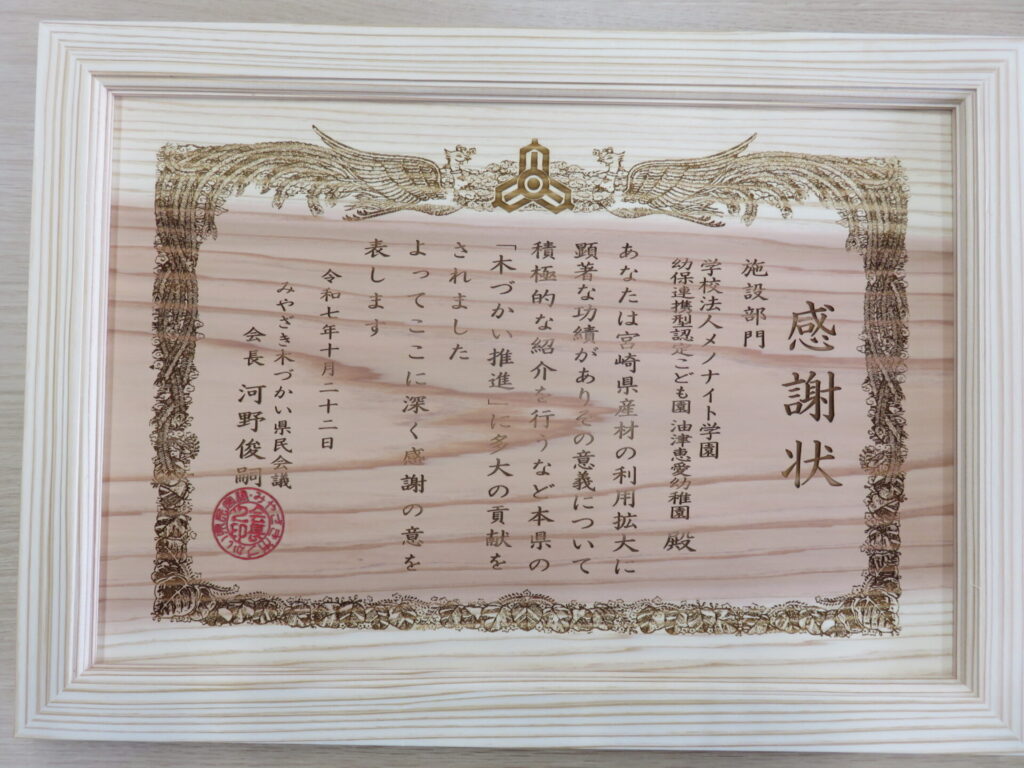 感謝状
施設部門
学校法人メノナイト学園
幼保連携型認定こども園 油津恵愛幼稚園 殿
あなたは宮崎県産材の利用拡大に
顕著な功績がありその意義について
積極的な紹介を行うなど本県の
「木づかい推進」に多大の貢献を
されました
よってここに深く感謝の意を
表します
令和七年十月二十二日
みやざき木づかい県民会議
会長 河野俊嗣
みやざき木づかい県民会議
会長之印